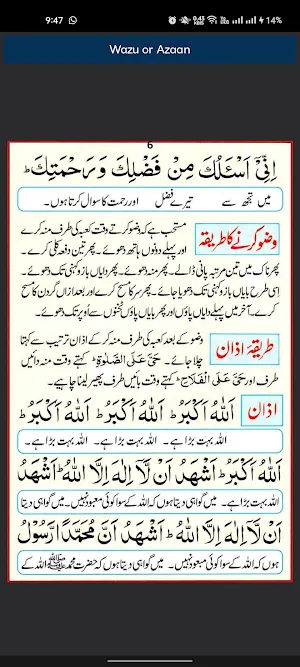 9:47
14%
Wazu or Azaan
6
اِنِّیْۤ اَسْئَلُكَ مِنْ فَضْلِكَ وَرَحْمَتِكَ ؕ
میں تجھ سے تیرے فضل اور رحمت کا سوال کرتا ہوں۔
وضو کرنے کا طریقہ
مستحب ہے کہ وضو کرتے وقت کعبہ کی طرف منہ کرے
اور پہلے دونوں ہاتھ دھوئے۔ پھر تین دفعہ کلی کرے۔
پھر ناک میں تین مرتبہ پانی ڈالے۔ پھر منہ دھوئے۔ پھر دایاں بازو کہنی تک دھوئے۔
اِسی طرح بایاں بازو کہنی تک دھویا جائے۔ پھر سر کا مسح کرے اور بعد ازاں گردن کا مسح
کرے۔ آخر میں پہلے دایاں پاؤں اور پھر بایاں پاؤں ٹخنوں سے اُوپر تک دھوئے۔
طریقۂ اذان
وضو کے بعد کعبہ کی طرف منہ کر کے اذان ترتیب سے کہتا
چلا جائے۔ حَیَّ عَلَی الصَّلٰوۃِ ؕ کہتے وقت منہ دائیں
طرف اور حَیَّ عَلَی الْفَلَاحِ ؕ کہتے وقت بائیں طرف پھیر لینا چاہیے۔
اذان
اَللّٰهُ اَكْبَرُ ؕ اَللّٰهُ اَكْبَرُ ؕ اَللّٰهُ اَكْبَرُ ؕ
اللہ بہت بڑا ہے۔ اللہ بہت بڑا ہے۔ اللہ بہت بڑا ہے۔
اَللّٰهُ اَكْبَرُ ؕ اَشْهَدُ اَنْ لَّاۤ اِلٰهَ اِلَّا اللّٰهُ ؕ اَشْهَدُ
اللہ بہت بڑا ہے۔ میں گواہی دیتا ہوں کہ اللہ کے سوا کوئی معبود نہیں۔ میں گواہی دیتا
اَنْ لَّاۤ اِلٰهَ اِلَّا اللّٰهُ ؕ اَشْهَدُ اَنَّ مُحَمَّدًا رَّسُوْلُ
ہوں کہ اللہ کے سوا کوئی معبود نہیں۔ میں گواہی دیتا ہوں کہ حضرت محمد ﷺ اللہ کے